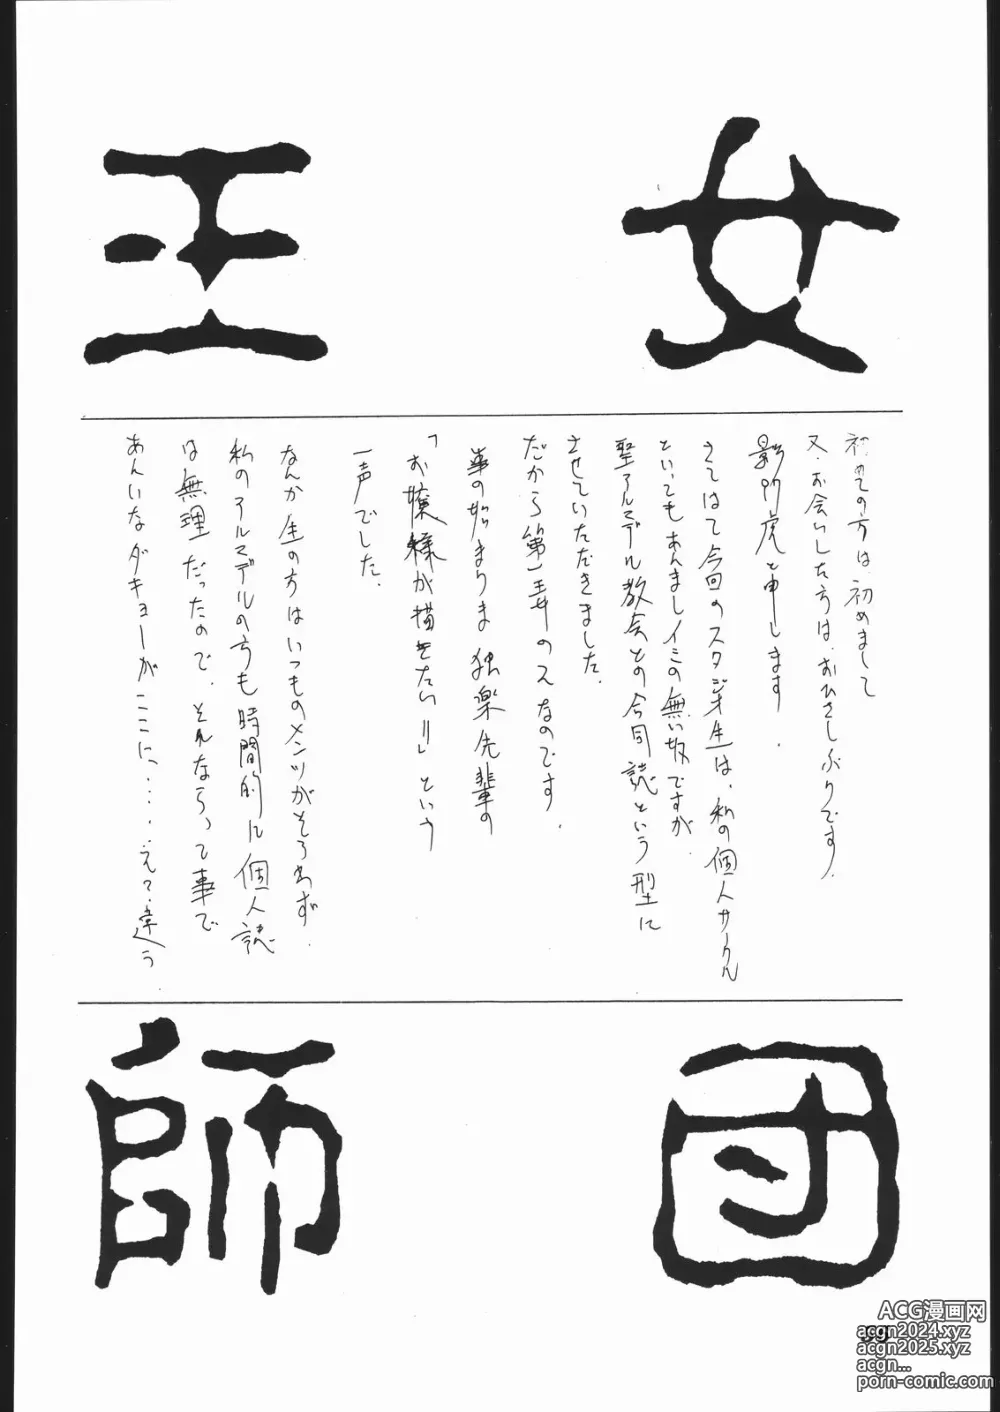 女
王
初めての方は、初めまして
又、お会いした方は、おひさしぶりです。
影門虎と申します。
さてはて今回のスタジオ生は、私の個人サークル
といってもあんましイミの無い奴ですが
聖アルマデル教会との合同誌という型に
させていただきました。
だから第一弄のえなのです。
事の始まりは独楽先輩の
「お嬢様が描きたい!!」という
一声でした。
なんか生の方はいつものメンツがそろわず、
私のアルマデルの方も時間的に個人誌
は無理だったので、それならって事で
あんいなダキョーがここに・・・・・えっ、違う
団
師
39
ACG漫画网
acgn2024.xyz
acgn2025.xyz
acgn...
porn-comic.com